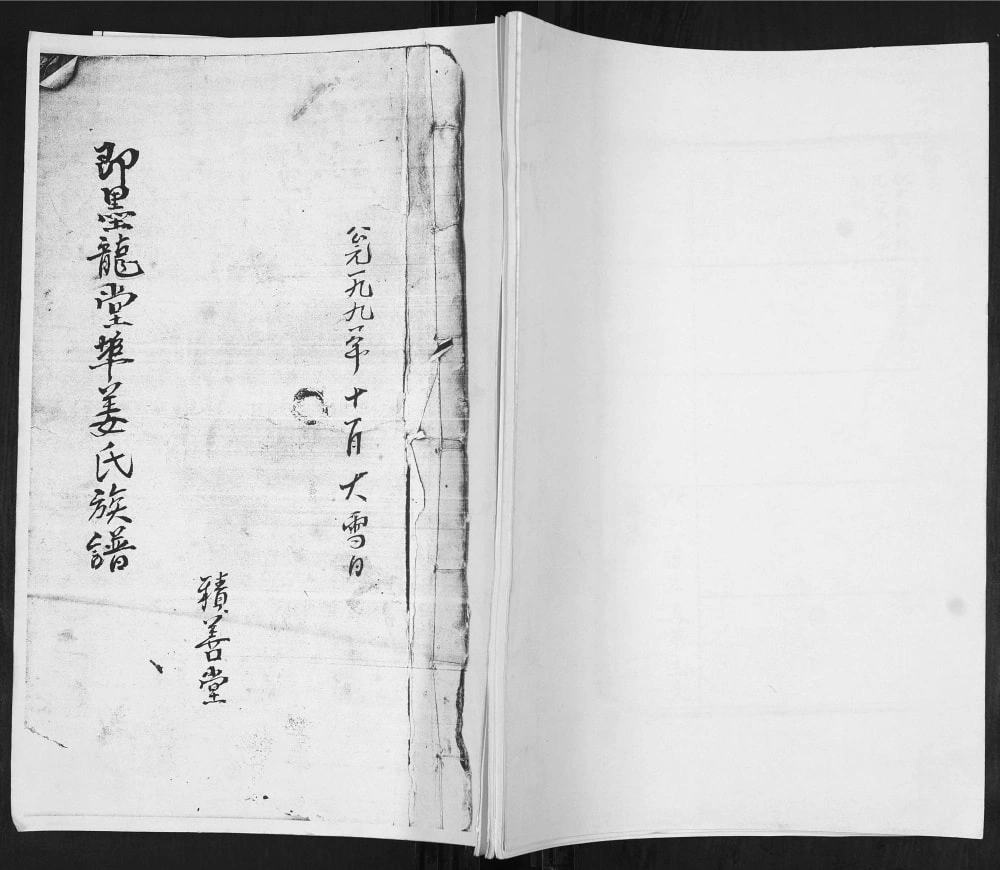 公元一九九一年十一月大雪日
積善堂
即墨龍堂埠姜氏族譜